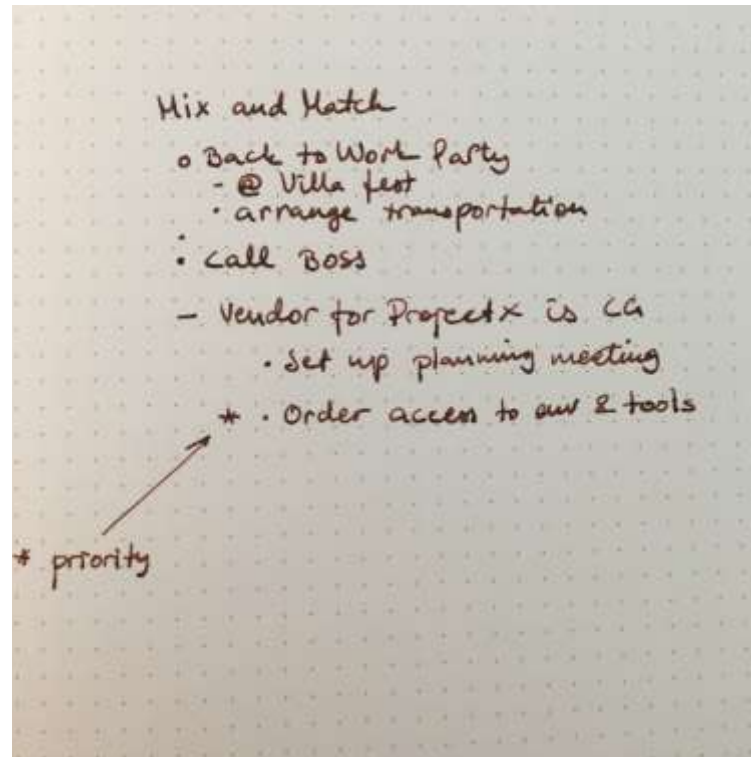 Mix and Match
o Back to Work Party
- @ Villa fest
• arrange transportation
• Call Boss
- Vendor for Project X is CG
• Set up planning meeting
* • Order access to env & tools
* priority